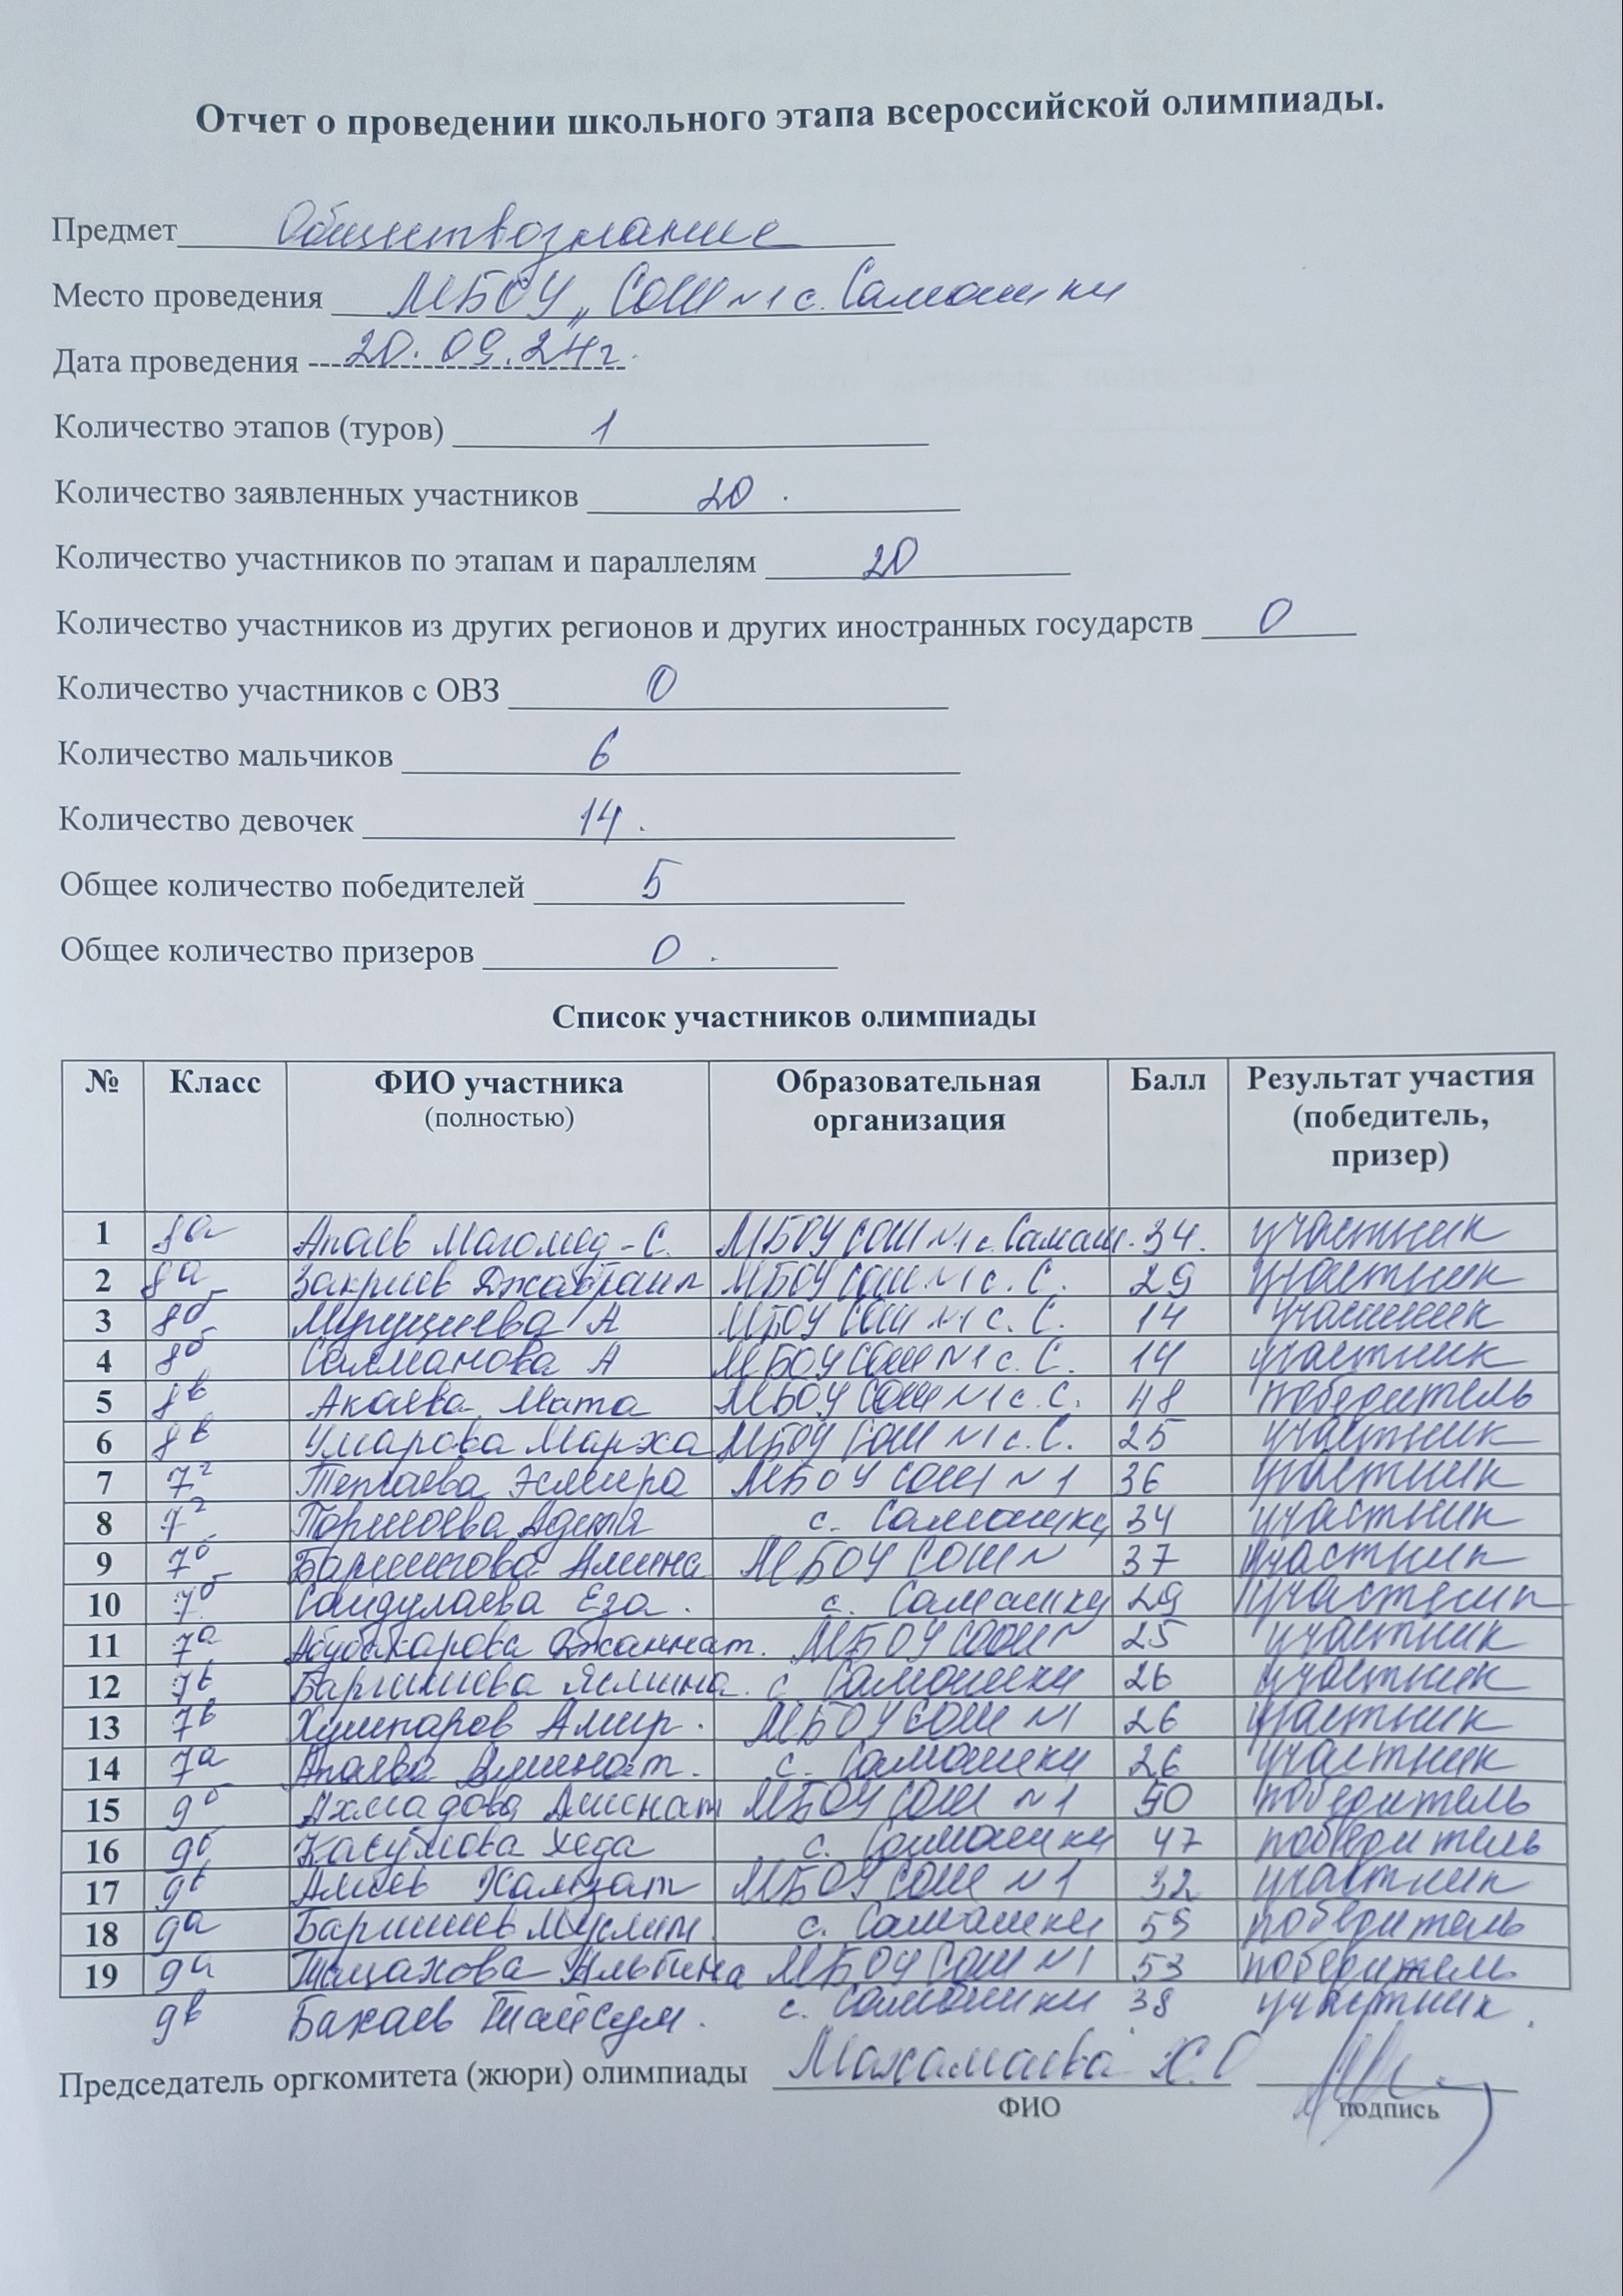 Отчет о проведении школьного этапа всероссийской олимпиады.
Предмет Обществознание
Место проведения МБОУ „ СОШ №1 с. Самашки
Дата проведения 20.09.24г.
Количество этапов (туров) 1
Количество заявленных участников 20.
Количество участников по этапам и параллелям 20
Количество участников из других регионов и других иностранных государств 0
Количество участников с ОВЗ 0
Количество мальчиков 6
Количество девочек 14.
Общее количество победителей 5
Общее количество призеров 0.
Список участников олимпиады
№ Класс ФИО участника (полностью) Образовательная организация Балл Результат участия (победитель, призер)
1 8а Апаев Магомед-С. МБОУ СОШ №1 с. Самаш. 34. участник
2 8а Закриев Джабраил МБОУ СОШ №1 с. С. 29 участник
3 8б А МБОУ СОШ №1 с. С. 14 участник
4 8б Салманова А МБОУ СОШ №1 с. С. 14 участник
5 8в Акаева Мата МБОУ СОШ №1 с. С. 48 победитель
6 8в Умарова Марха МБОУ СОШ №1 с. С. 25 участник
7 7г Эсмира МБОУ СОШ №1 36 участник
8 7г с. Самашки 34 участник
9 7б Амина МБОУ СОШ № 37 участник
10 7б Сайдулаева Еза. с. Самашки 29 участник
11 7а Абубакарова Джаннат. МБОУ СОШ № 25 участник
12 7в Ясмина. с Самашки 26 участник
13 7в Амир. МБОУ СОШ №1 26 участник
14 7а Апаева с. Самашки 26 участник
15 9б Ахмадова Аминат МБОУ СОШ №1 50 победитель
16 9б Касумова Хеда с. Самашки 47 победитель
17 9в Алиев Хамзат МБОУ СОШ №1 32 участник
18 9а Муслим с. Самашки 55 победитель
19 9а Альбина МБОУ СОШ №1 53 победитель
9в Бакаев Тайсум. с. Самашки 38 участник.
Председатель оргкомитета (жюри) олимпиады Махамаева Х.О
ФИО подпись